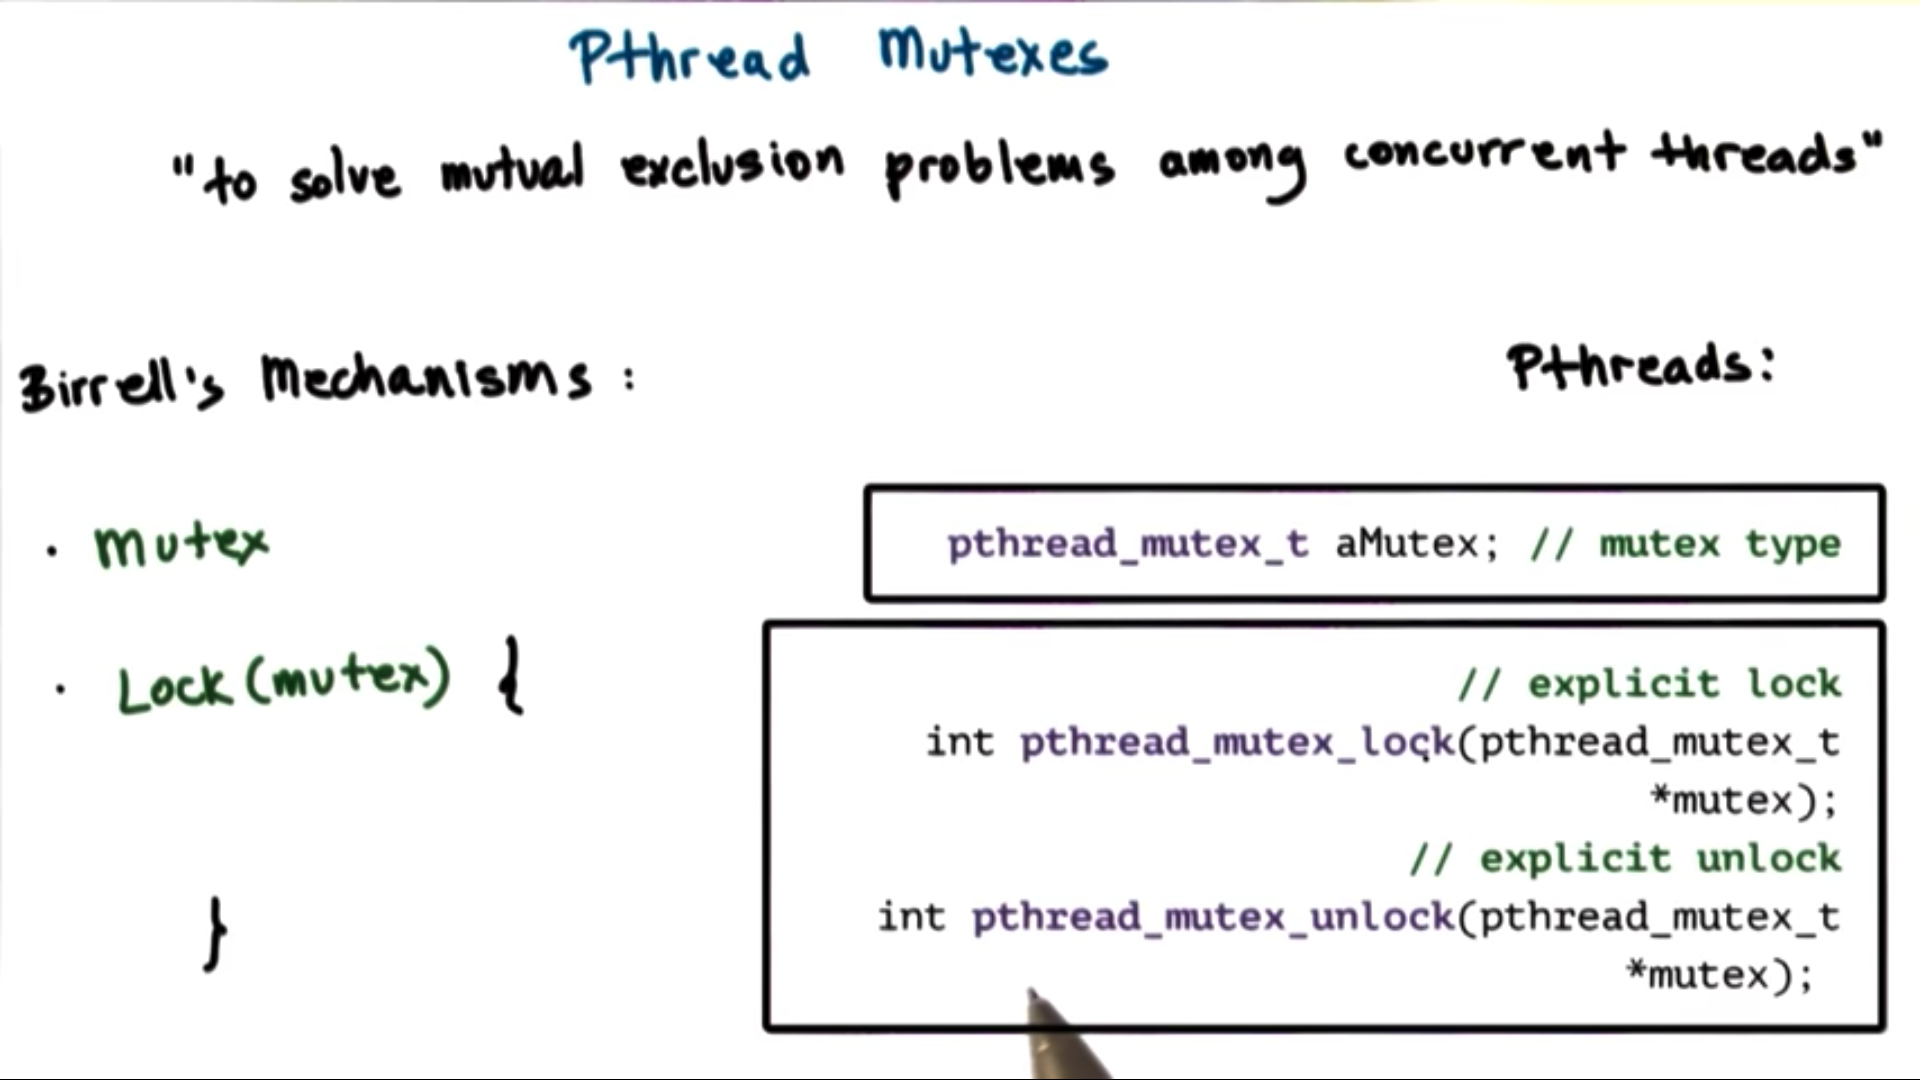 Pthread Mutexes
"to solve mutual exclusion problems among concurrent threads"
Birrell's Mechanisms :
· mutex
· Lock (mutex) {
}
Pthreads:
pthread_mutex_t aMutex; // mutex type
// explicit lock
int pthread_mutex_lock(pthread_mutex_t
*mutex);
// explicit unlock
int pthread_mutex_unlock(pthread_mutex_t
*mutex);